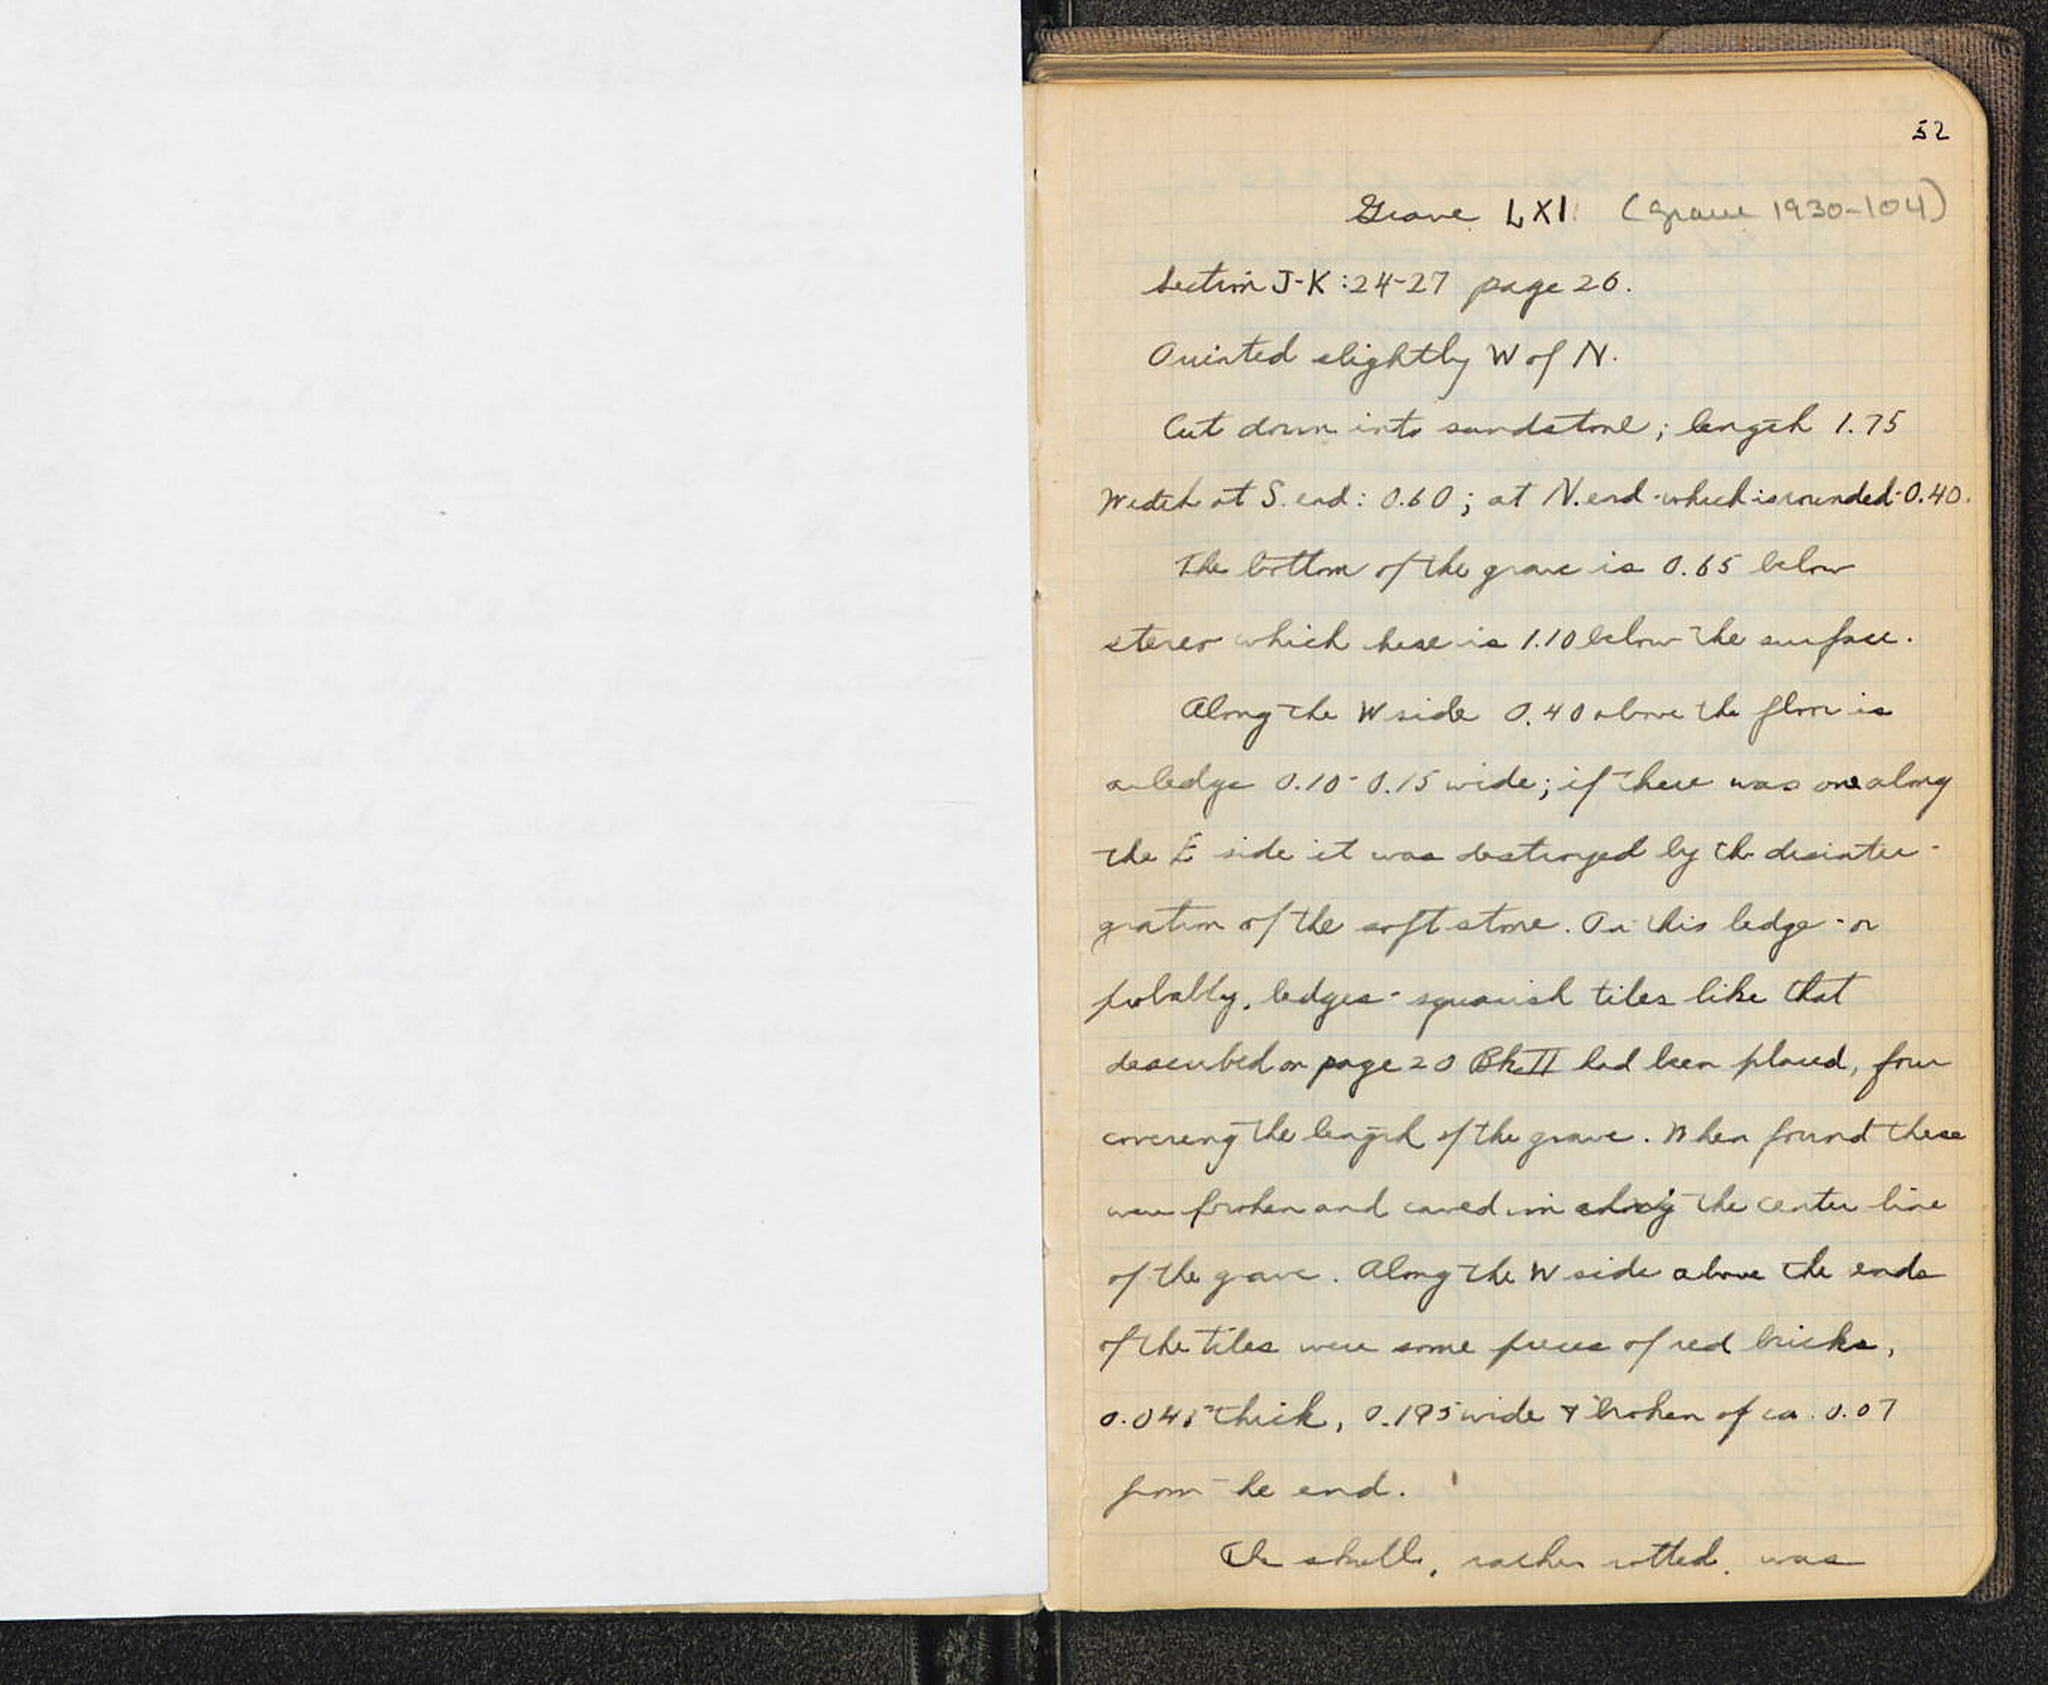 52
Grave LXI (Grave 1930-104)
Section J-K:24-27 page 26.
Oriented slightly W of N.
Cut down into sandstone; length 1.75
Width at S. end: 0.60; at N. end - which is rounded - 0.40.
The bottom of the grave is 0.65 below
stereo which here is 1.10 below the surface.
Along the W side 0.40 above the floor is
a ledge 0.10-0.15 wide; if there was one along
the E side it was destroyed by the disinte-
gration of the soft stone. On this ledge - or
probably, ledges - squarish tiles like that
described on page 20 Bk II had been placed, four
covering the length of the grave. When found these
were broken and caved in along the center line
of the grave. Along the W side above the ends
of the tiles were some pieces of red bricks,
0.045 thick, 0.195 wide & broken of ca. 0.07
from the end.
The skull, rather rotted, was